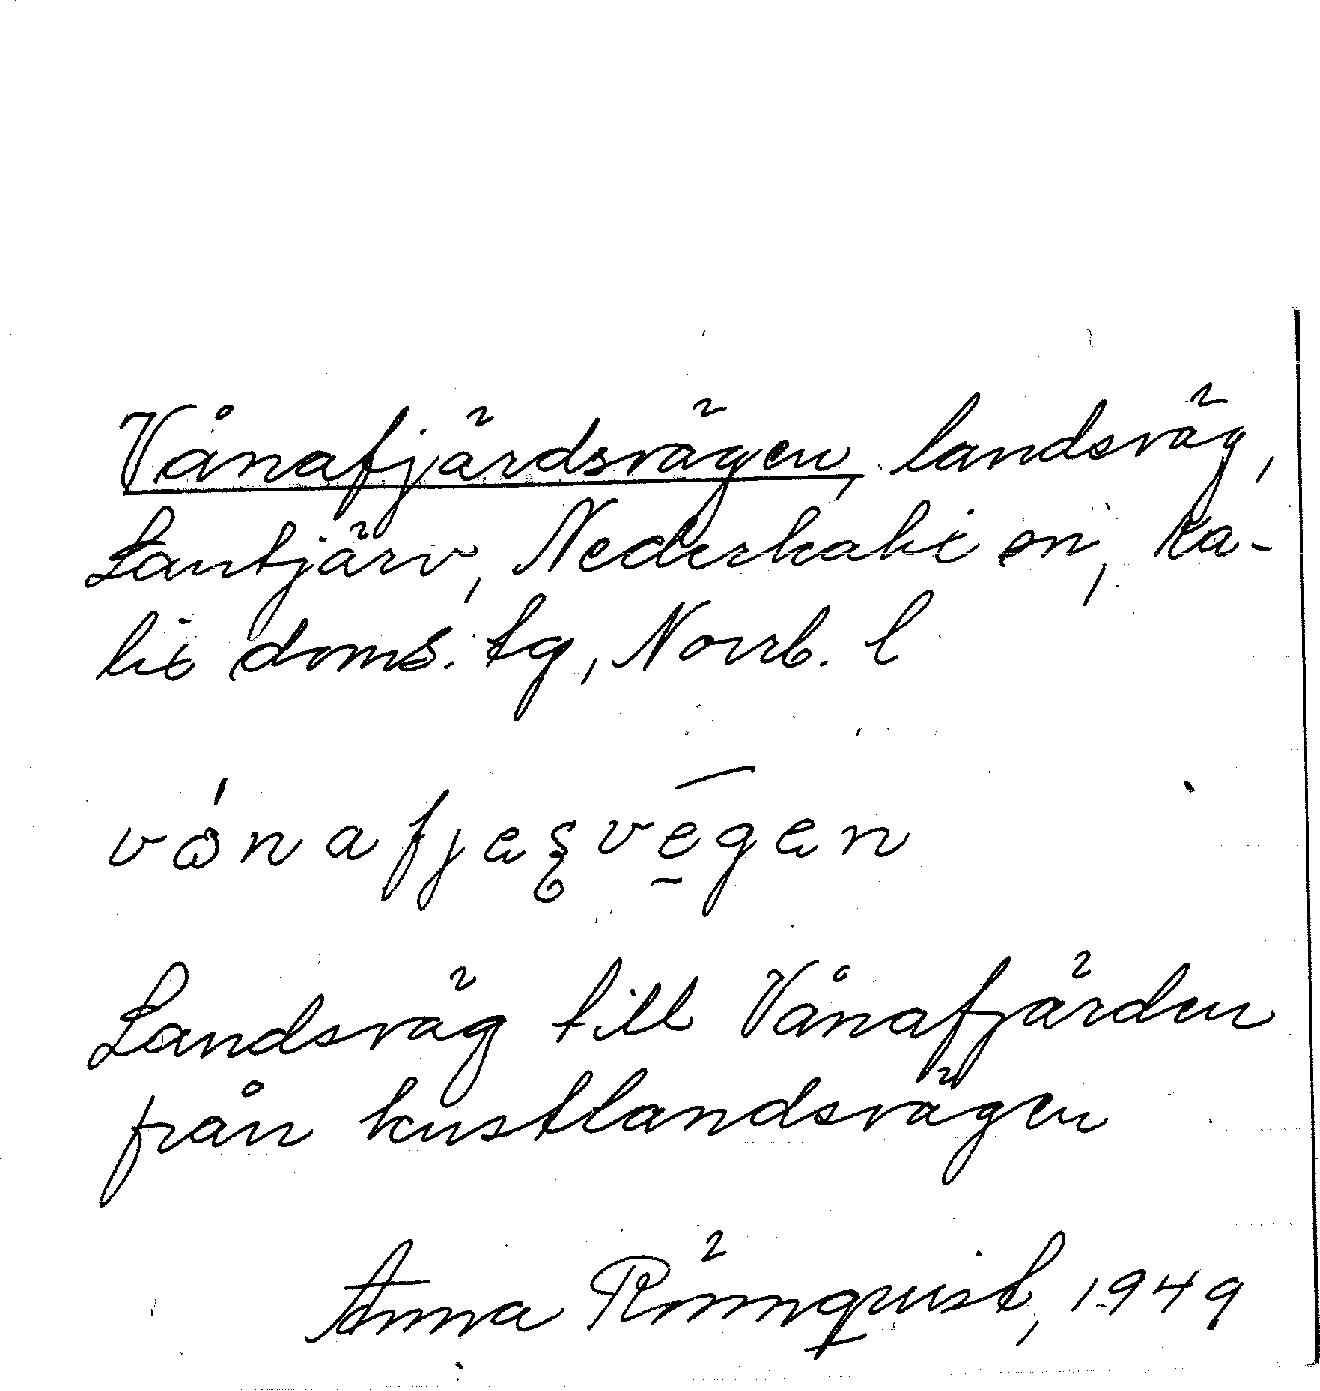 Vånafjärdsvägen, landsväg,
Lantjärv, Nederkalix sn, Ka-
lix doms. tg, Norrb. l
Landsväg till Vånafjärden
från kustlandsvägen
Anna Rönnquist, 1949